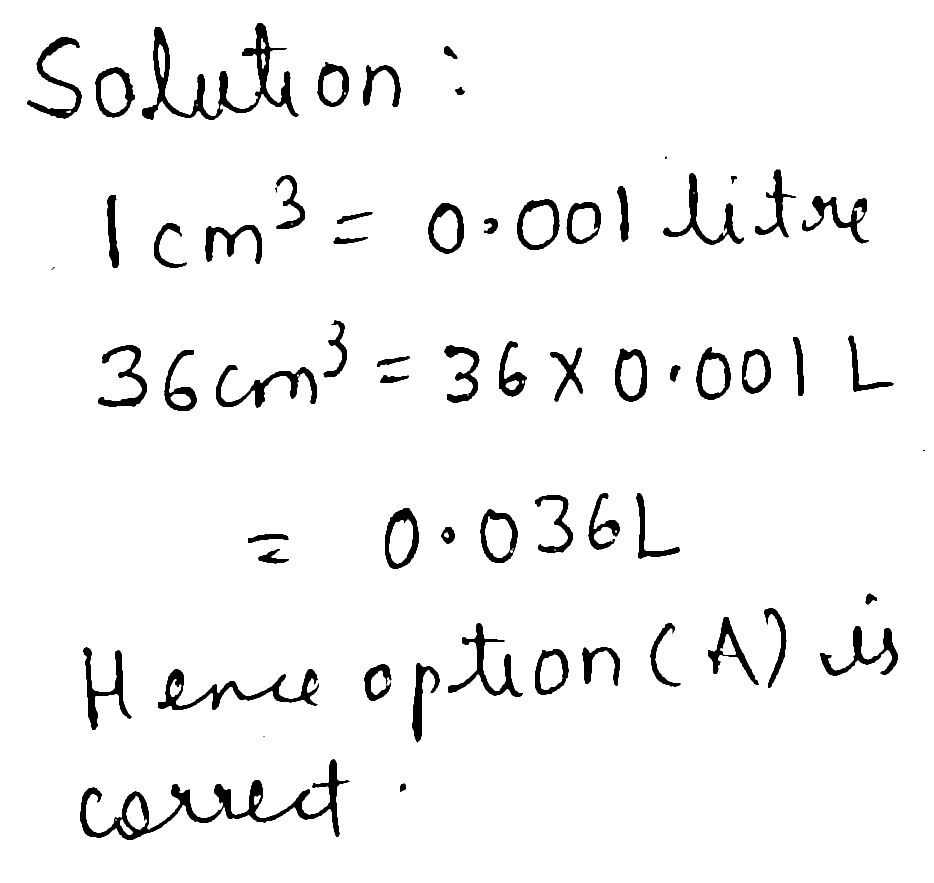 Solution :
1 cm³ = 0.001 litre
36 cm³ = 36 X 0.001 L
= 0.036L
Hence option (A) is
correct.